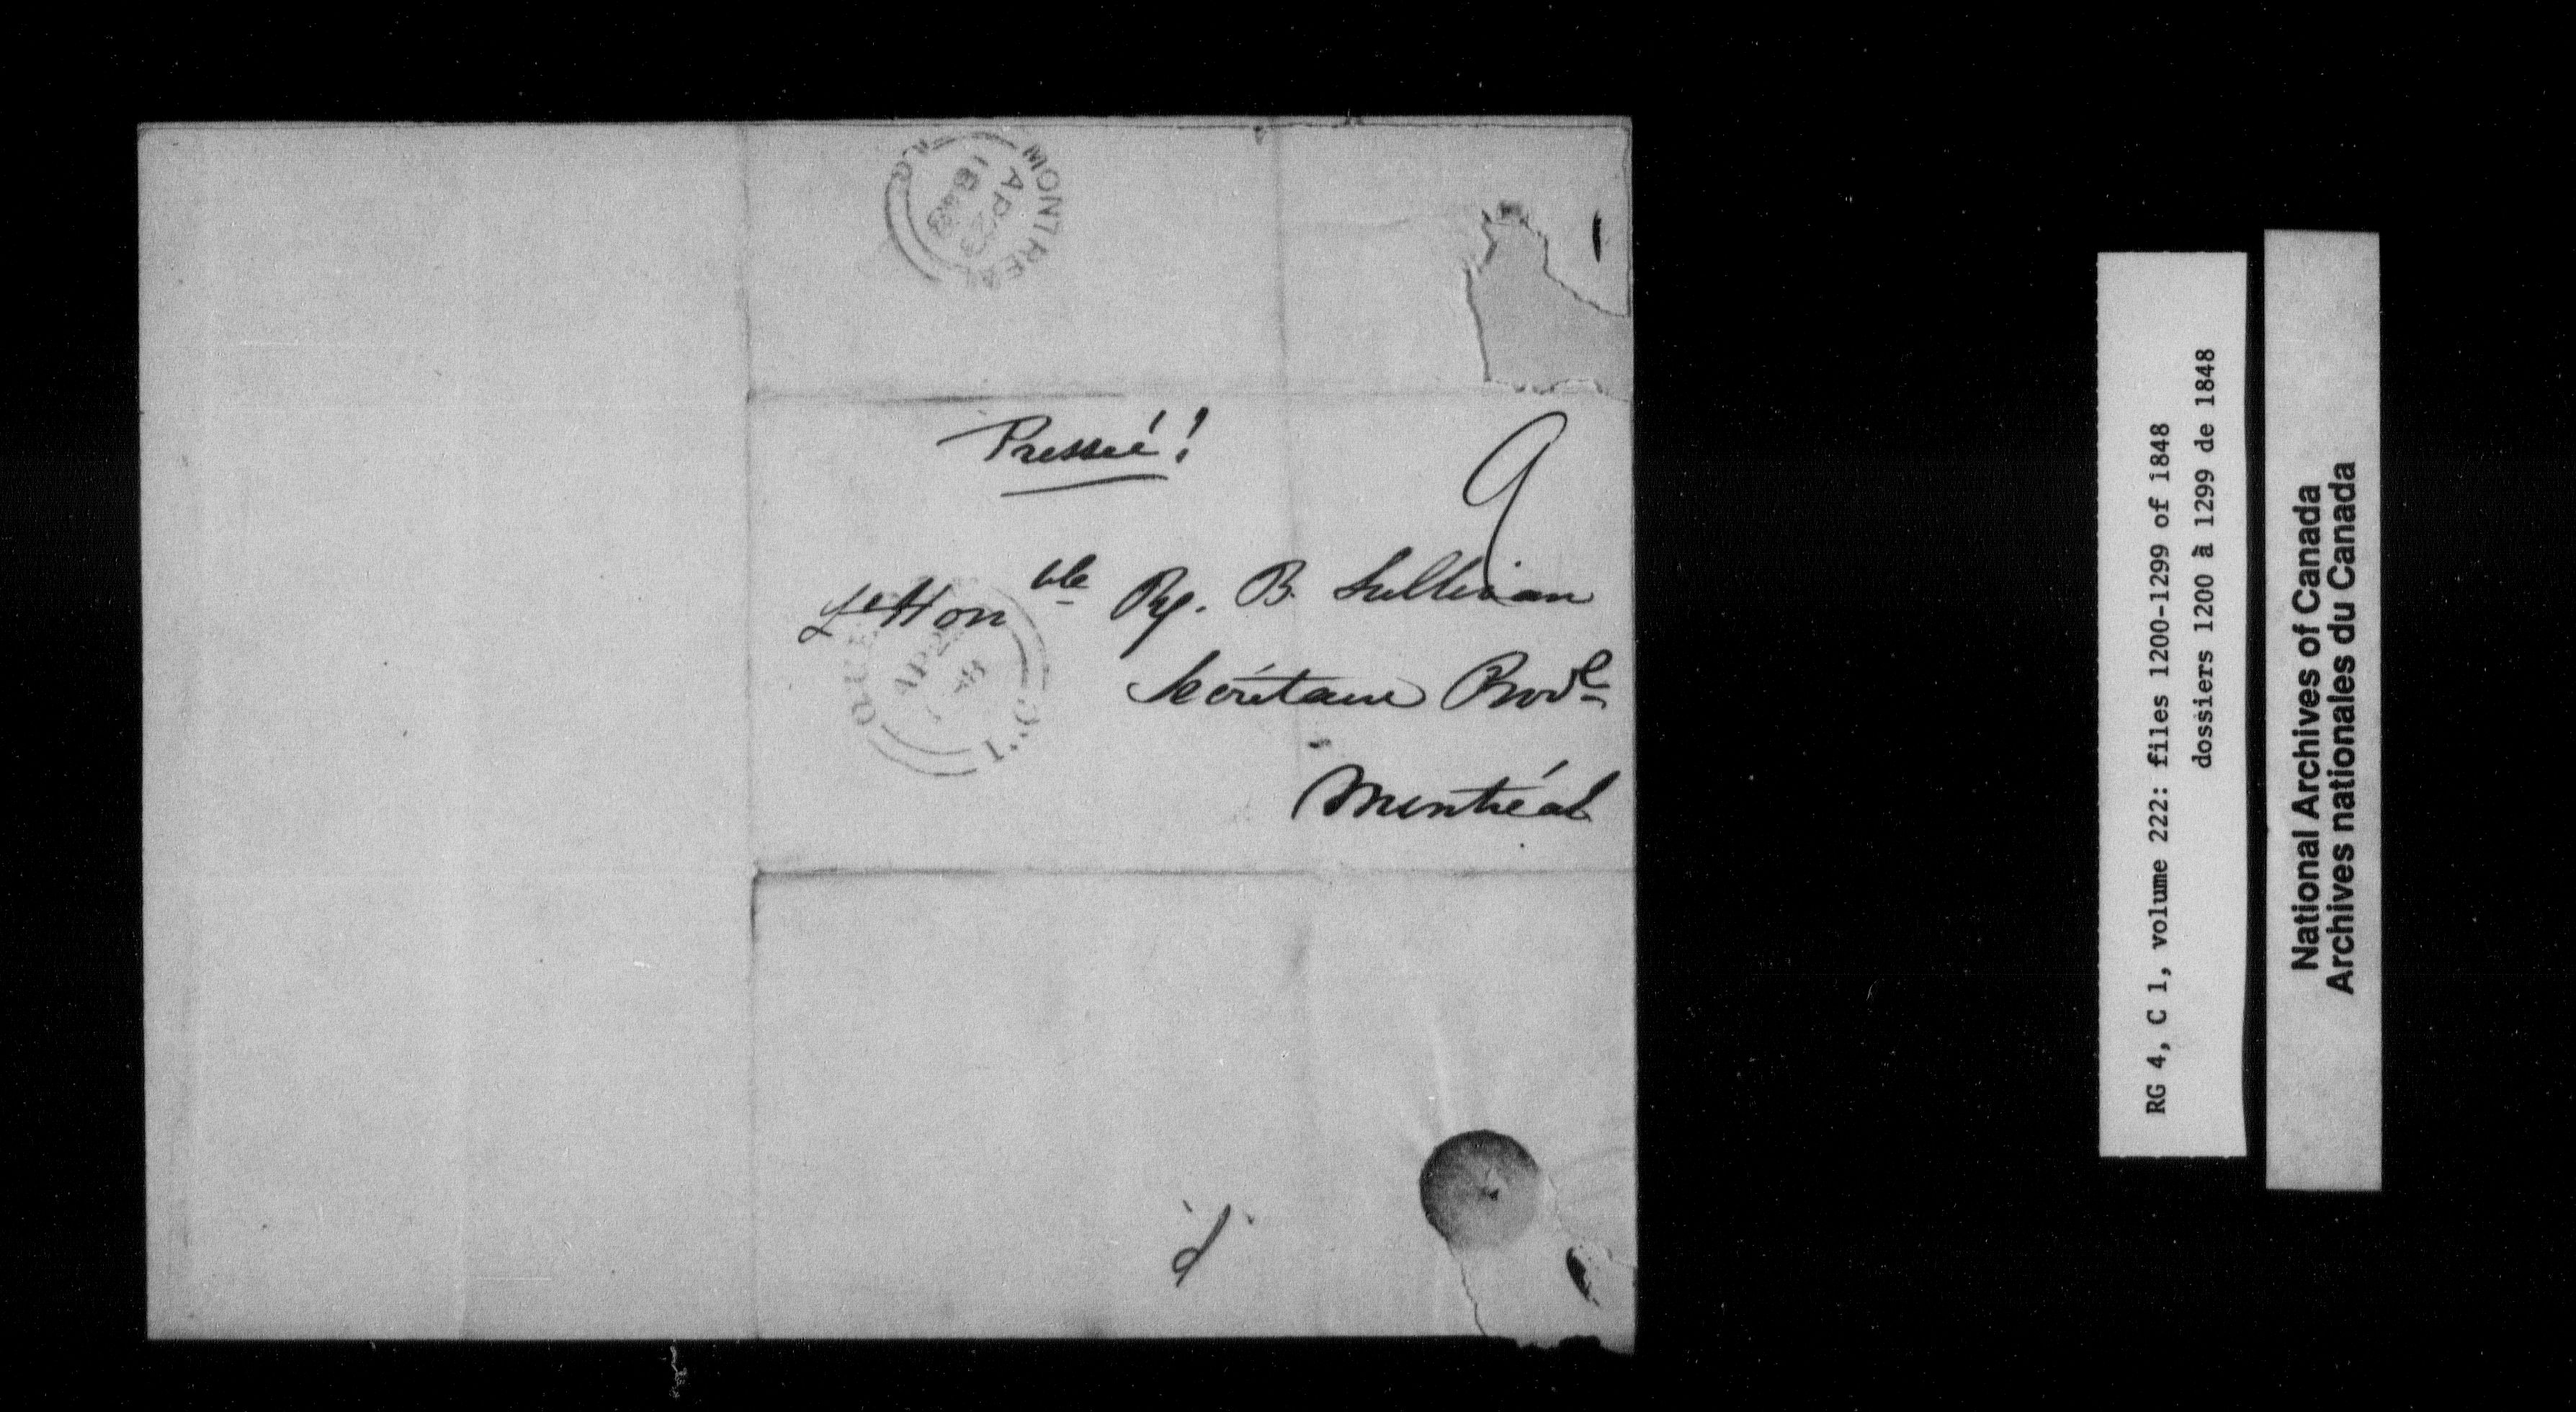 MONTREAL
AP 23
1848
Pressée!
9
L'Honble R. B. Sullivan
Secrétaire Provl
Montréal
L.C.
RG 4, C 1, volume 222: files 1200-1299 of 1848
dossiers 1200 à 1299 de 1848
National Archives of Canada
Archives nationales du Canada